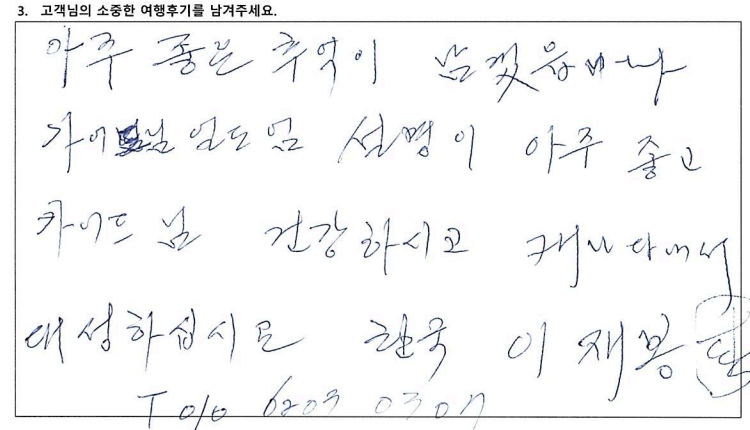 3. 고객님의 소중한 여행후기를 남겨주세요.
아주 좋은 추억이
설명이 아주 좋고
카이드 님 건강하시고 캐나다에서
대성하십시요 한국 이재봉
T 010 6203 0307